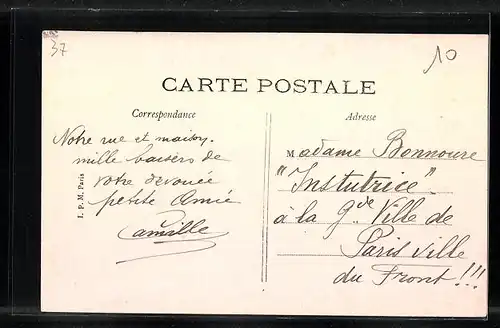 37
10
CARTE POSTALE
Correspondance
Adresse
Notre rue et maison.
mille baisers de
votre dévouée
petite Amie
Camille
I. P. M. Paris
Madame Bonnoure
"Instutrice"
à la Gde Ville de
Paris ville
du Front!!!